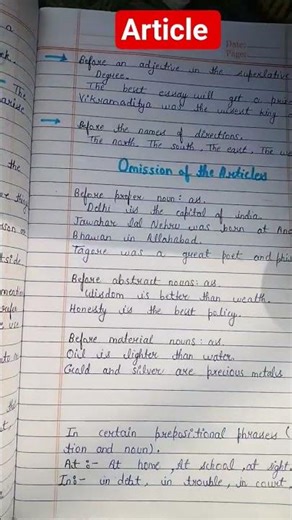 Article
Date:
Page:
Before an adjective in the superlative
Degree.
The best essay will get a
Vikramaditya was the wisest king
Before the names of directions.
The north, The south, The east, The
Omission of the Articles
Before proper noun: as.
Delhi is the capital of india.
Jawahar lal Nehru was born at
Bhawan in Allahabad.
Tagore was a great poet and
Before abstract nouns: as.
Wisdom is better than wealth.
Honesty is the best policy.
Before material nouns: as.
Oil is lighter than water.
Gold and silver are precious metals
In certain prepositional phrases (
tion and noun).
At :- At home, At school, at sight.
In:- in debt, in trouble, in court,